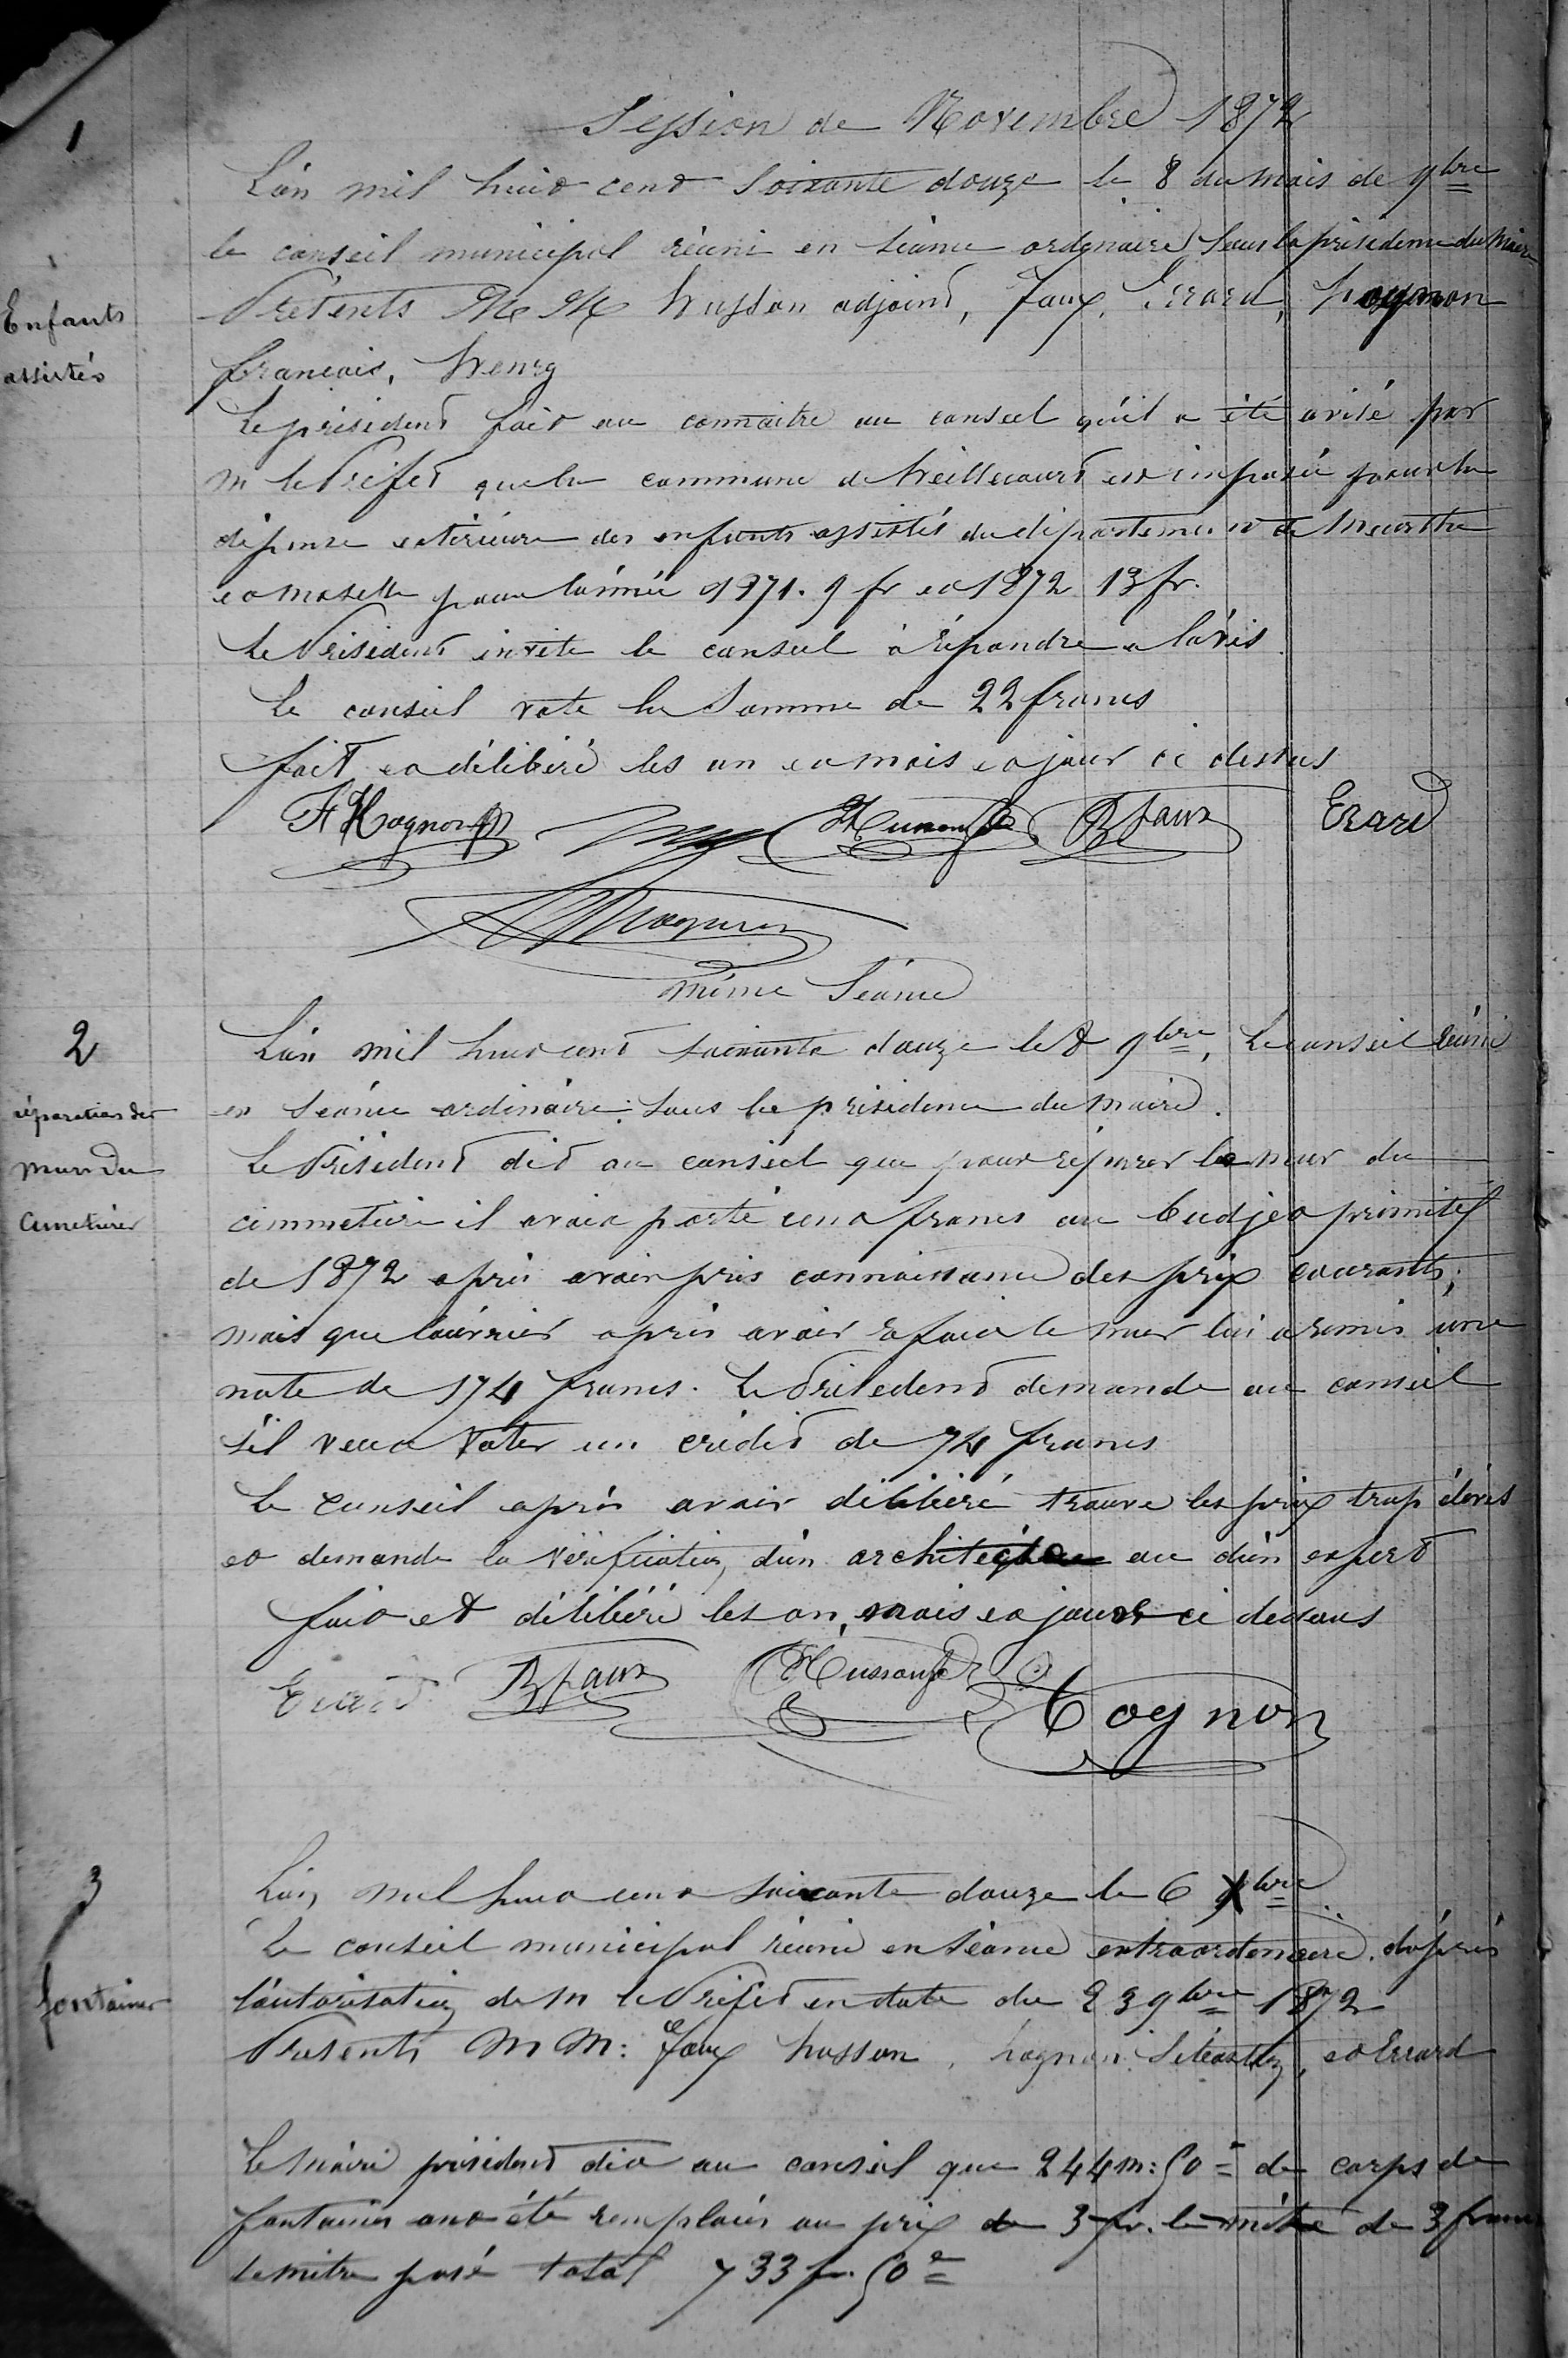 1
Session de Novembre 1872
L'an mil huit cent soixante douze le 8 du mois de 9bre
le conseil municipal réuni en séance ordinaire sous la présidence du Maire
Enfants
assistés
Présents MM Husson adjoint, Faux, Errard, hognon
francois, henry
Le président fait au connaitre au conseil qu'il a été avisé par
m le Préfet que la commune de héillecourt est imposée pour la
dépense extérieure des enfants assistés du département de Meurthe
et moselle pour l'année 1871. 9 fr et 1872 13 fr.
Le Président invite le conseil à répondre a l'avis
Le conseil vote la Somme de 22 francs
fait et délibéré les an et mois et jour ci dessus
F Hognon Husson B faux Erard
même Séance
2
L'an mil huit cent soixante douze le 8 9bre, Le conseil réuni
en séance ordinaire sous la présidence du maire.
réparation des
murs du
cimetière
Le Président dit au conseil que pour réparer le mur du
cimmetière il avait porté cent francs au budjet primitif
de 1872 après avoir pris connaissance des prix courants,
mais que l'ouvrier après avoir refait le mur lui a remis une
note de 174 francs. Le Président demande au conseil
s'il veut voter un crédit de 74 francs
Le conseil après avoir délibéré trouve les prix trop élévés
et demande la vérification d'un architecte ou d'un expert
fait et délibéré les an, mois et jours ci dessus
Erard B faux Husson hognon
3
L'an mil huit cent soixante douze le 6 Xbre
Le conseil municipal réuni en séance extraordinaire d'après
fontaines
l'autorisation de m le Préfet en date du 23 9bre 1872
Présents MM: faux husson, hognon Sébastien, et Errard
Le maire président dit au conseil que 244 m: 50 de corps de
fontaines ont été remplacés au prix de 3 fr. le mètre de 3 francs
le mètre posé total 733 fr. 50 c